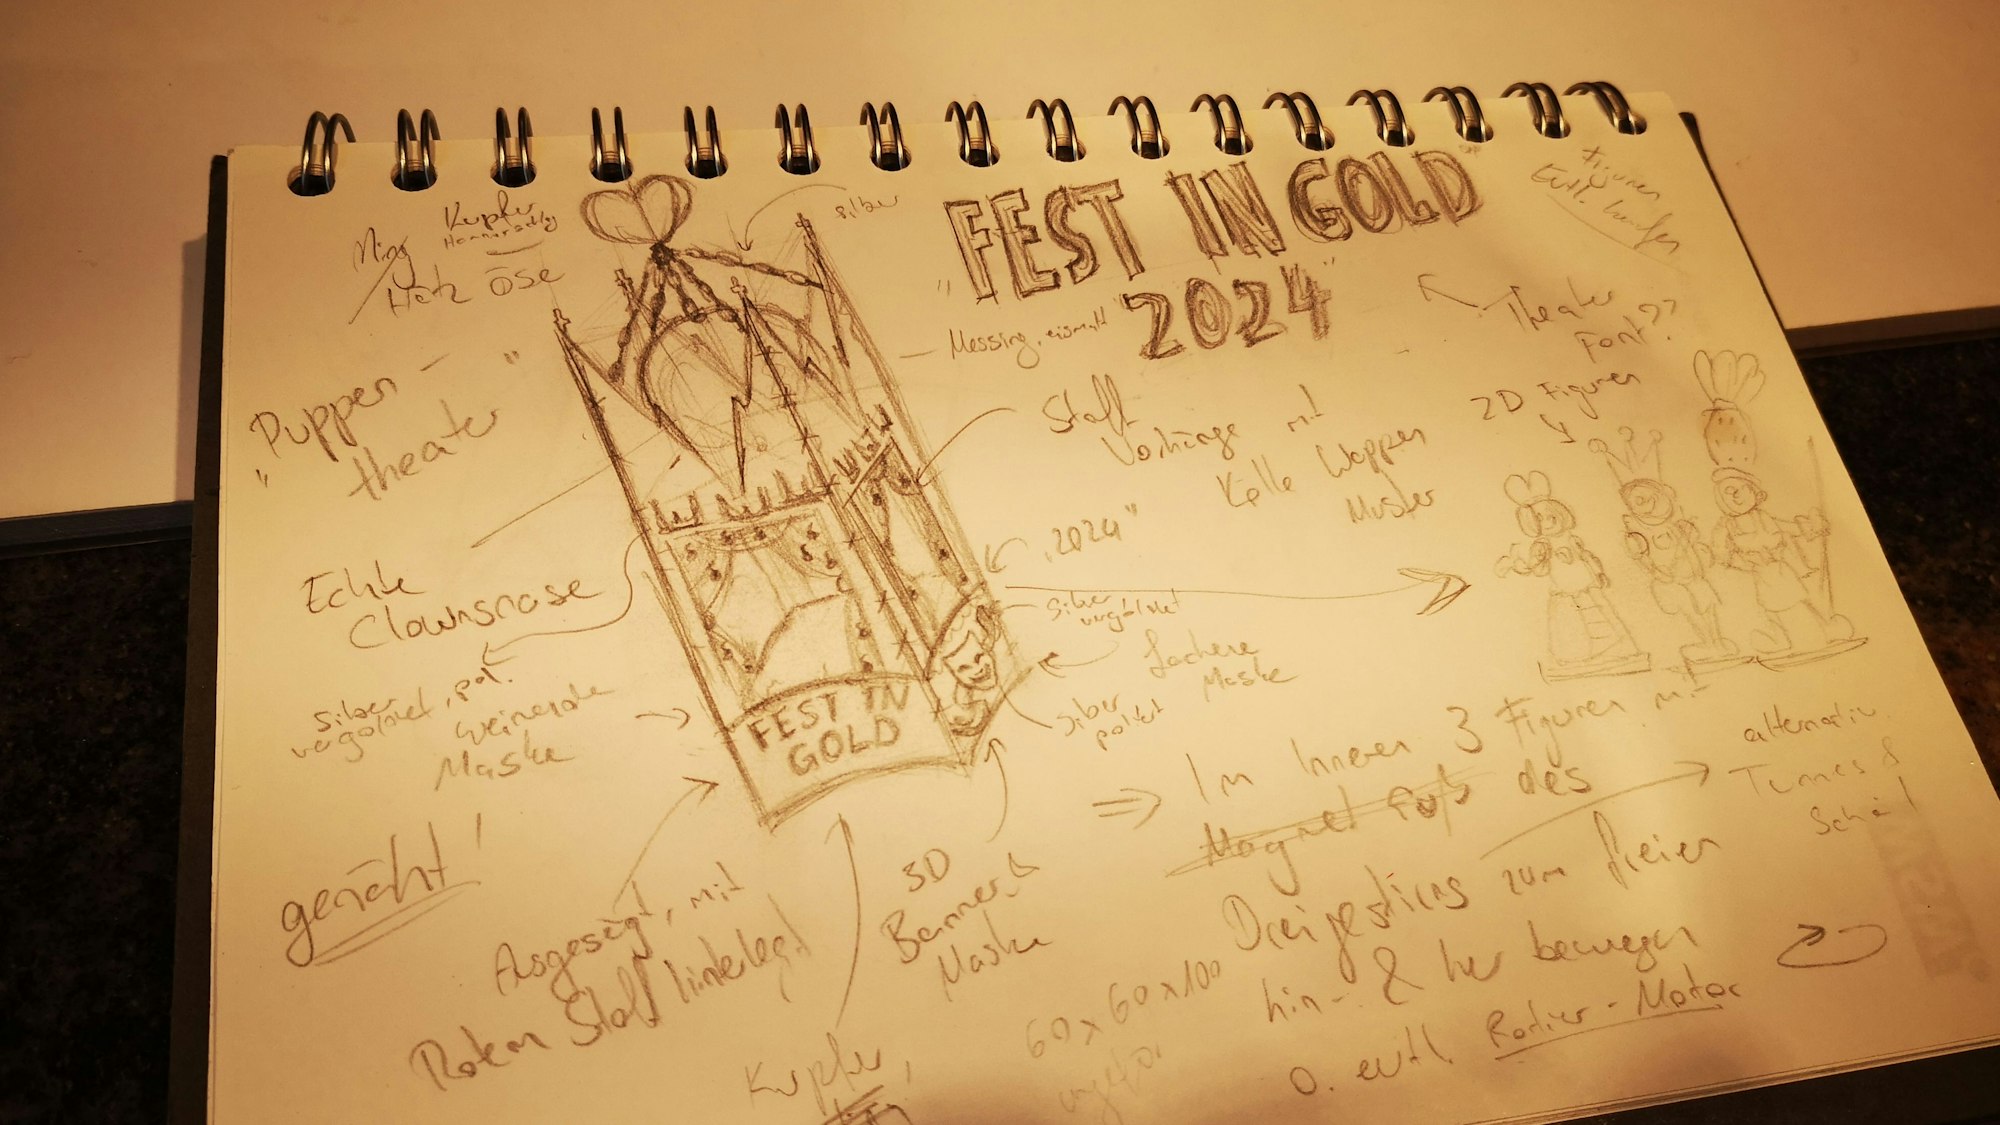 "FEST IN GOLD
2024"
Kupfer
Herz Öse
silber
Figuren
Theater
Font??
"Puppen-
theater"
Messing,
Stoff
Vorhänge mit
Kölle Wappen
Muster
2D Figuren
Echte
Clownsnase
"2024"
silber
vergoldet
silber
vergoldet, pol.
weinende
Maske
Lachene
Maske
silber
poliert
FEST IN
GOLD
genäht!
Ausgesägt, mit
Rotem Stoff hinterlegt
3D
Banner &
Maske
Kupfer
60x60x100
ungefär
=> Im Inneren 3 Figuren mit
Magnet Fuß des
Dreigestirns zum freien
hin- & her bewegen
o. evtl. Radier-Motor
alternativ
Tünnes &
Schäl